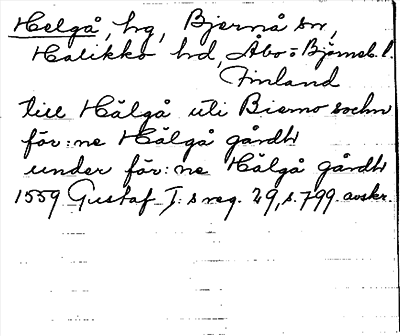 Helgå, hg, Bjernå sn,
Halikko hd, Åbo-Björneb. l.
Finland
till Hålgå uti Biemo sochn
för:ne Hålgå gårdh
under för:ne Hålgå gårdh
1559 Gustaf I:s reg. 29, s. 799. avskr.